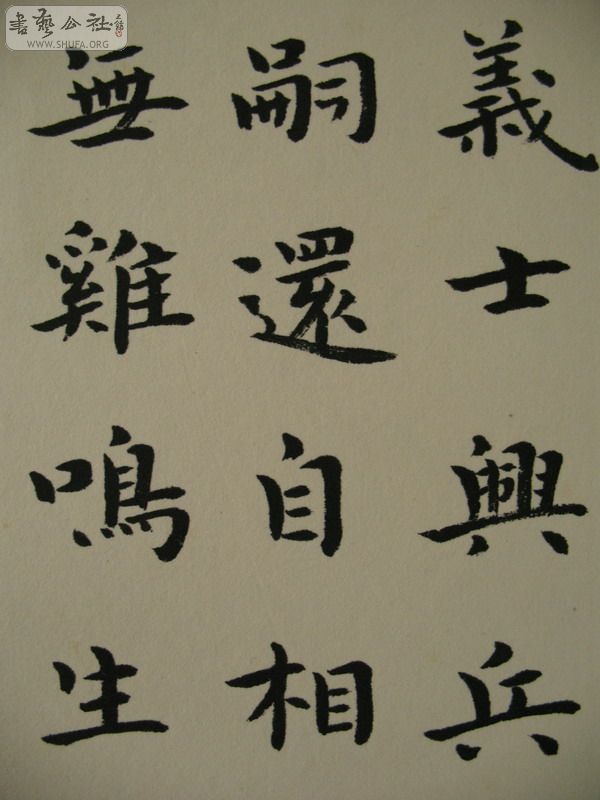 書藝公社
WWW.SHUFA.ORG
義士興兵
嗣還自相
無雞鳴生